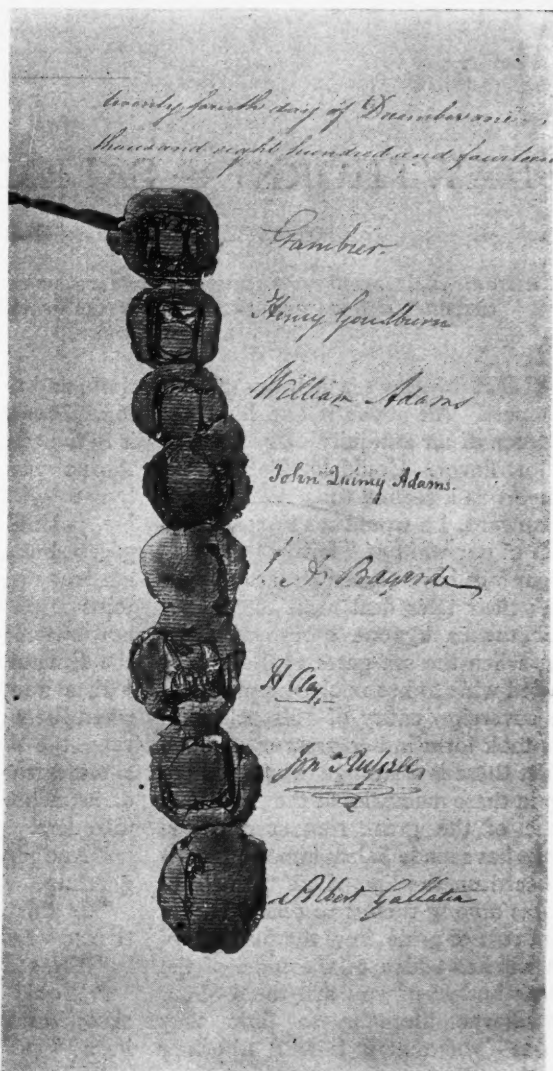 twenty fourth day of December one
thousand eight hundred and fourteen
Gambier.
Henry Goulburn
William Adams
John Quincy Adams.
J. A. Bayard
H Clay.
Jon. Russell
Albert Gallatin